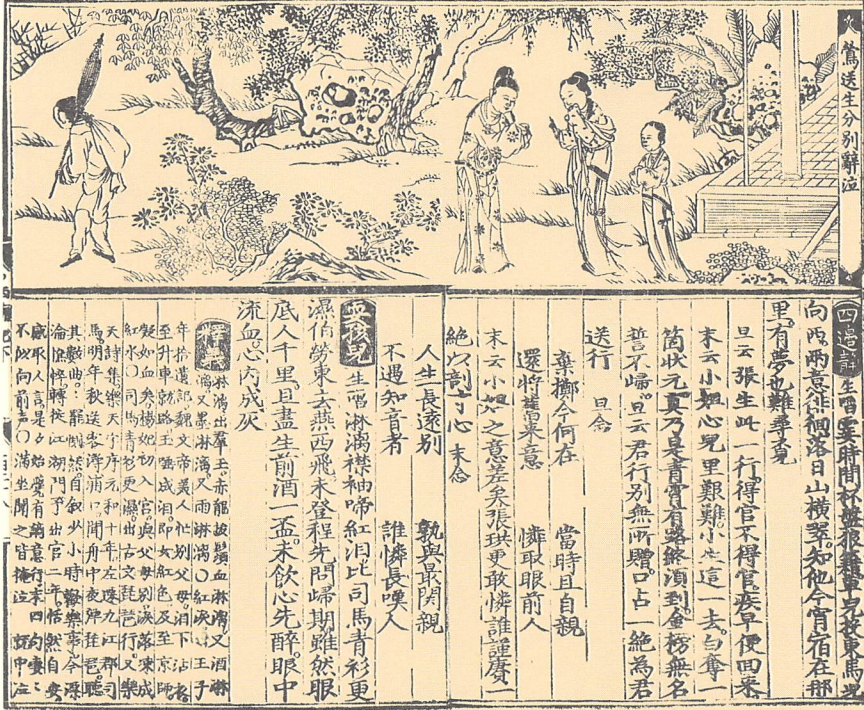 鶯送生分別辭泣
四邊靜 生唱霎時間杯盤狼籍車兒投東馬兒
向西兩意徘徊落日山橫翠知他今宵宿在那
里有夢也難尋覓
旦云張生此一行得官不得官疾早便回來
末云小姐心兒里艱難小生這一去白奪一
箇狀元真乃是青霄有路終須到金榜無名
誓不歸旦云君行別無所贈口占一絕為君
送行 旦念
棄擲今何在 當時且自親
還將舊來意 憐取眼前人
末云小姐之意差矣張珙更敢憐誰謹賡一
絕以剖寸心 末念
人生長遠別 孰與最関親
不遇知音者 誰憐長嘆人
耍孩兒 生唱淋漓襟袖啼紅泪比司馬青衫更
濕伯勞東去燕西飛未登程先問歸期雖然眼
底人千里且盡生前酒一盃未飲心先醉眼中
流血心內成灰
釋義 淋漓出羣玉赤龍披鬚血淋漓又酒淋
漓又墨淋漓又雨淋漓〇紅淚出王子
年拾遺記魏文帝美人忙別父母泪下沾衣
至升車就路玉壺成泪即如紅色及至京師
凝如血矣楊妃初入宮與父母別淚落凍成
紅水〇司馬青衫更濕出古文琵琶行又樂
天詩集樂天序元和十年左遷九江郡司
馬明年秋送客湓浦口聞舟中夜彈琵琶聽
其數曲罷憫然自敘少小時歡樂事今漂
淪憔悴轉徙江湖間予出官二年恬然自安
感斯人言是夕始覺有謫意行末四句凄凄
不似向前声〇滿坐聞之皆掩泣 就中泣